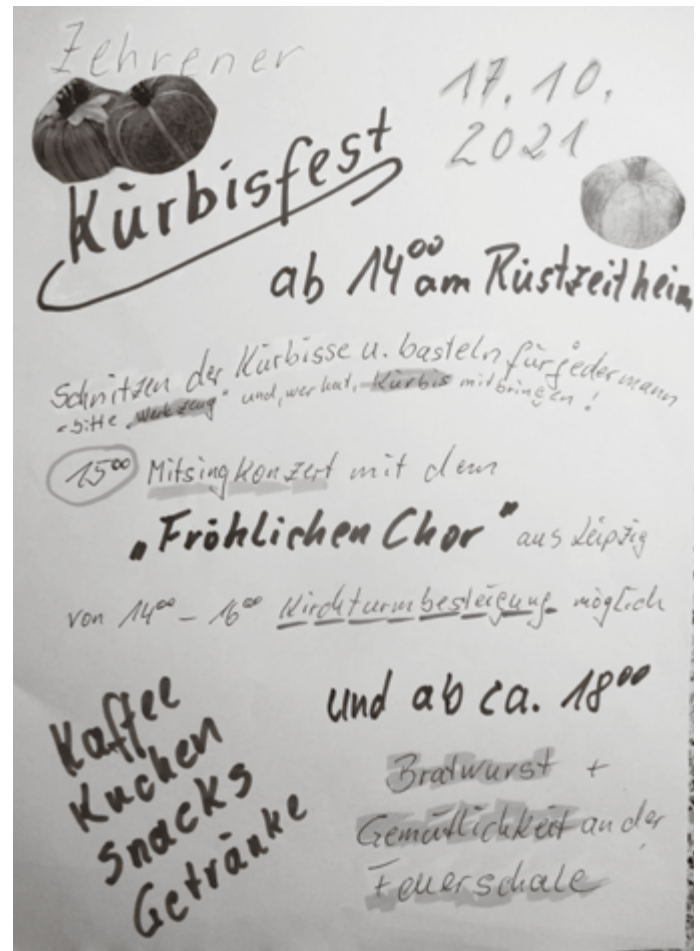 Zehrener
17.10.
2021
Kürbisfest
ab 14⁰⁰ am Rüstzeitheim
Schnitzen der Kürbisse u. basteln für jedermann
- Bitte „Werkzeug" und, wer hat, Kürbis mitbringen!
15⁰⁰ Mitsingkonzert mit dem
„Fröhlichen Chor" aus Leipzig
von 14⁰⁰ – 16⁰⁰ Kirchturmbesteigung möglich
und ab ca. 18⁰⁰
Bratwurst +
Gemütlichkeit an der
Feuerschale
Kaffee
Kuchen
Snacks
Getränke